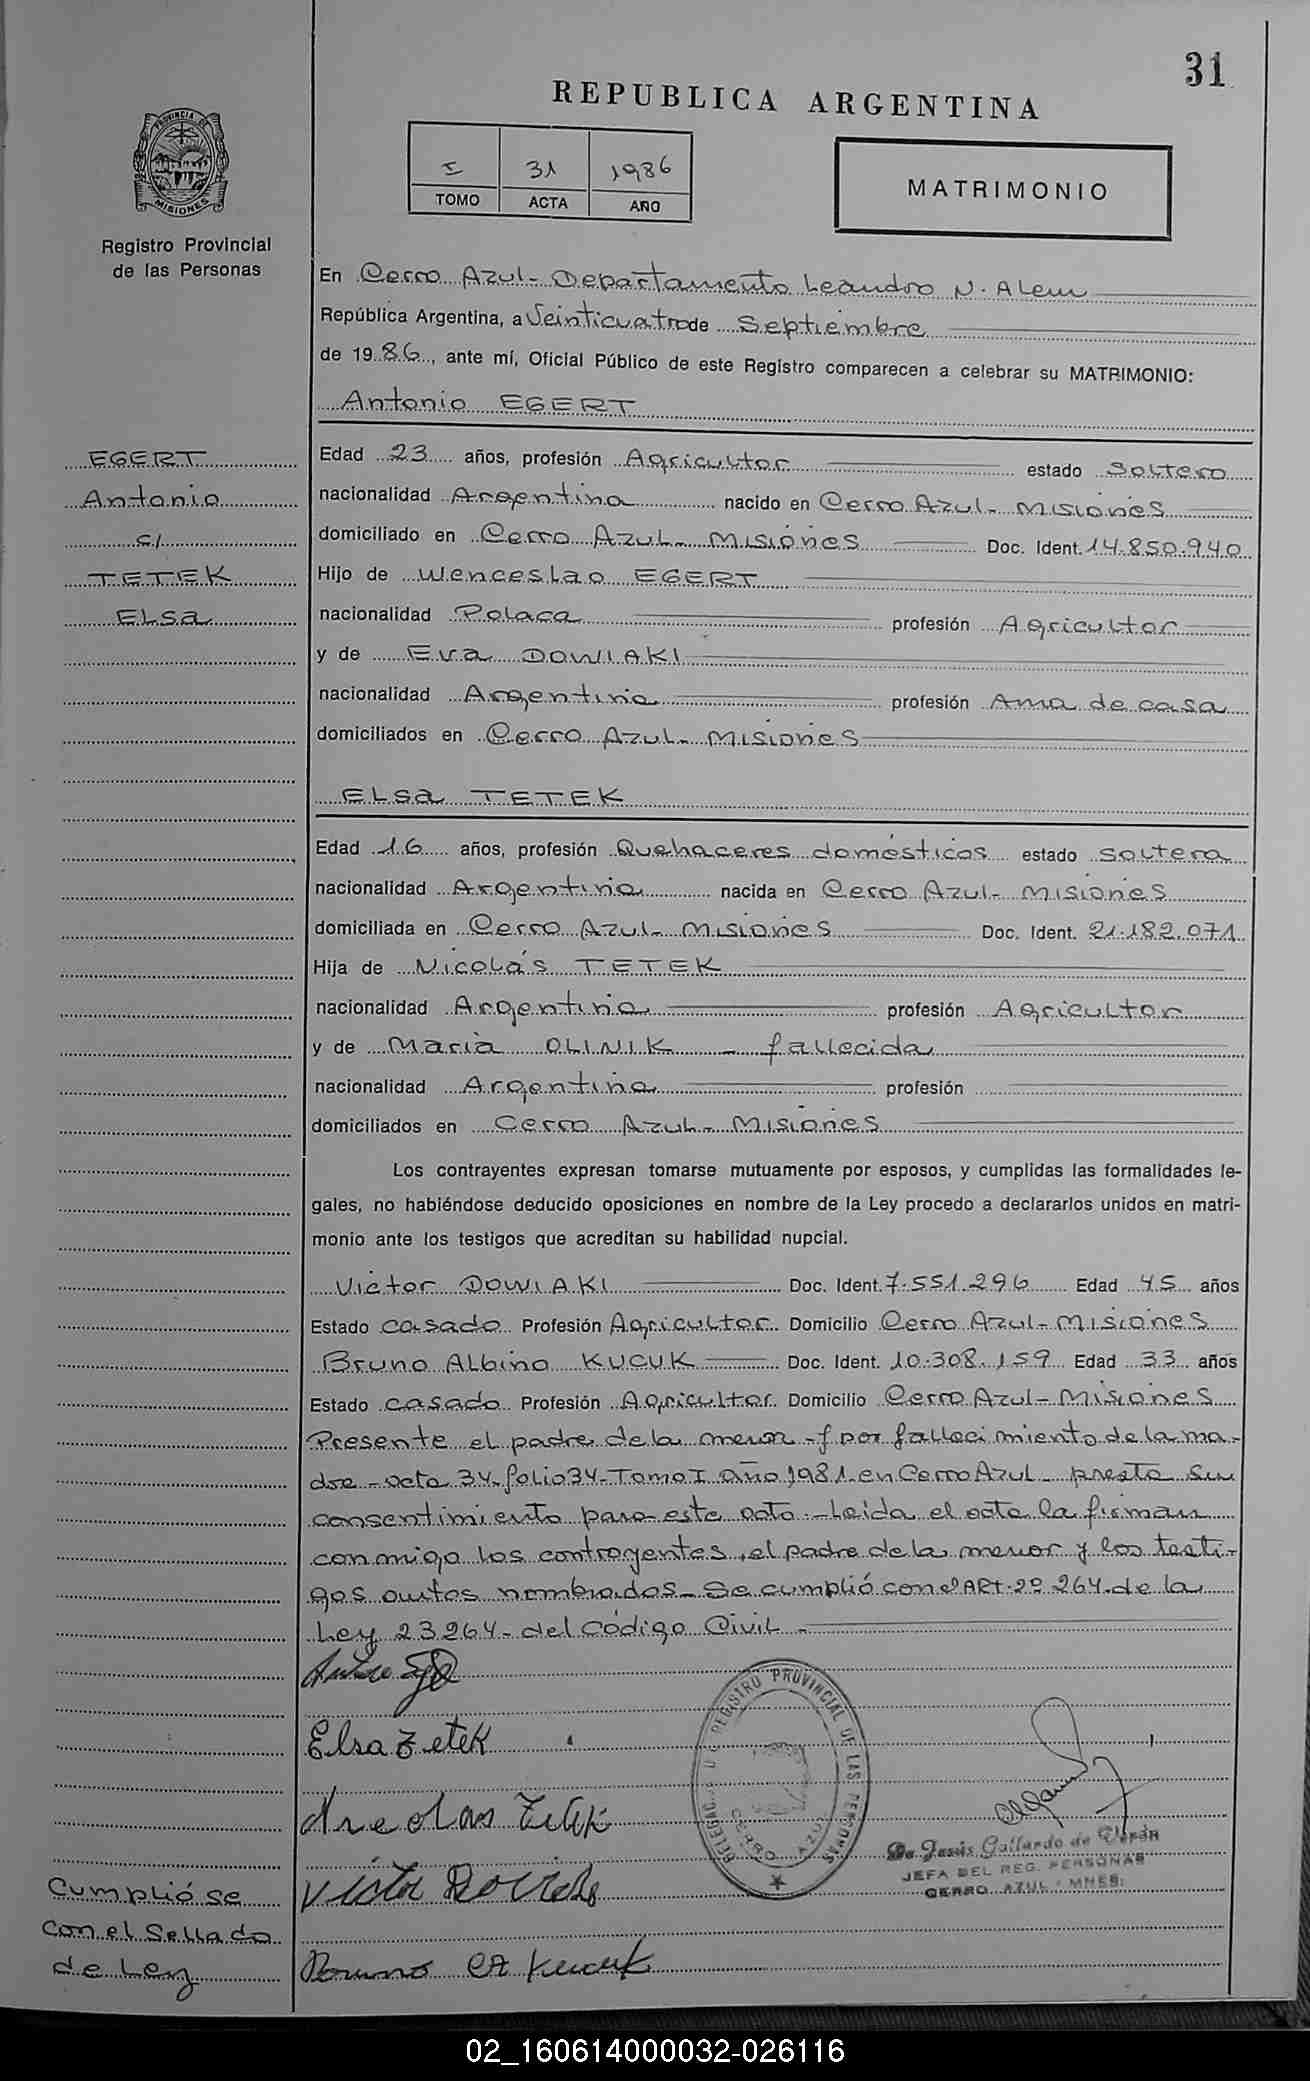 31
REPUBLICA ARGENTINA
PROVINCIA DE
MISIONES
Registro Provincial
de las Personas
I 31 1986
TOMO ACTA AÑO
MATRIMONIO
En Cerro Azul- Departamento Leandro N. Alem
República Argentina, a Veinticuatro de Septiembre
de 1986, ante mí, Oficial Público de este Registro comparecen a celebrar su MATRIMONIO:
Antonio EGERT
EGERT
Antonio
c/
TETEK
ELsa
Edad 23 años, profesión Agricultor estado Soltero
nacionalidad Argentina nacido en Cerro Azul- Misiones
domiciliado en Cerro Azul- Misiones Doc. Ident. 14.850.940
Hijo de Wenceslao EGERT
nacionalidad Polaca profesión Agricultor
y de Eva DOWIAKI
nacionalidad Argentina profesión Ama de casa
domiciliados en Cerro Azul- Misiones
ELsa TETEK
Edad 16 años, profesión Quehaceres domésticos estado soltera
nacionalidad Argentina nacida en Cerro Azul- Misiones
domiciliada en Cerro Azul- Misiones Doc. Ident. 21.182.071
Hija de Nicolás TETEK
nacionalidad Argentina profesión Agricultor
y de María OLINIK - fallecida
nacionalidad Argentina profesión
domiciliados en Cerro Azul- Misiones
Los contrayentes expresan tomarse mutuamente por esposos, y cumplidas las formalidades le-
gales, no habiéndose deducido oposiciones en nombre de la Ley procedo a declararlos unidos en matri-
monio ante los testigos que acreditan su habilidad nupcial.
Victor DOWIAKI Doc. Ident. 7.551.296 Edad 45 años
Estado casado Profesión Agricultor Domicilio Cerro Azul- Misiones
Bruno Albino KUCUK Doc. Ident. 10.308.159 Edad 33 años
Estado casado Profesión Agricultor Domicilio Cerro Azul- Misiones
Presente el padre de la menor -f por fallecimiento de la ma-
dre - acta 34- folio 34- Tomo I año 1981- en Cerro Azul- presta su
consentimiento para este acto.- Leída el acta la firman
conmigo los contrayentes, el padre de la menor y los testi-
gos antes nombrados- Se cumplió con el ART. 2º 264. de la
Ley 23264- del Código Civil-
Elsa Tetek
Victor
Bruno Kucuk
REGISTRO PROVINCIAL DE LAS PERSONAS
CERRO AZUL
De Jesús Gallardo de Verón
JEFA DEL REG. PERSONAS
CERRO AZUL - MNES.
Cumplió se
con el Sellado
de Ley
02_160614000032-026116